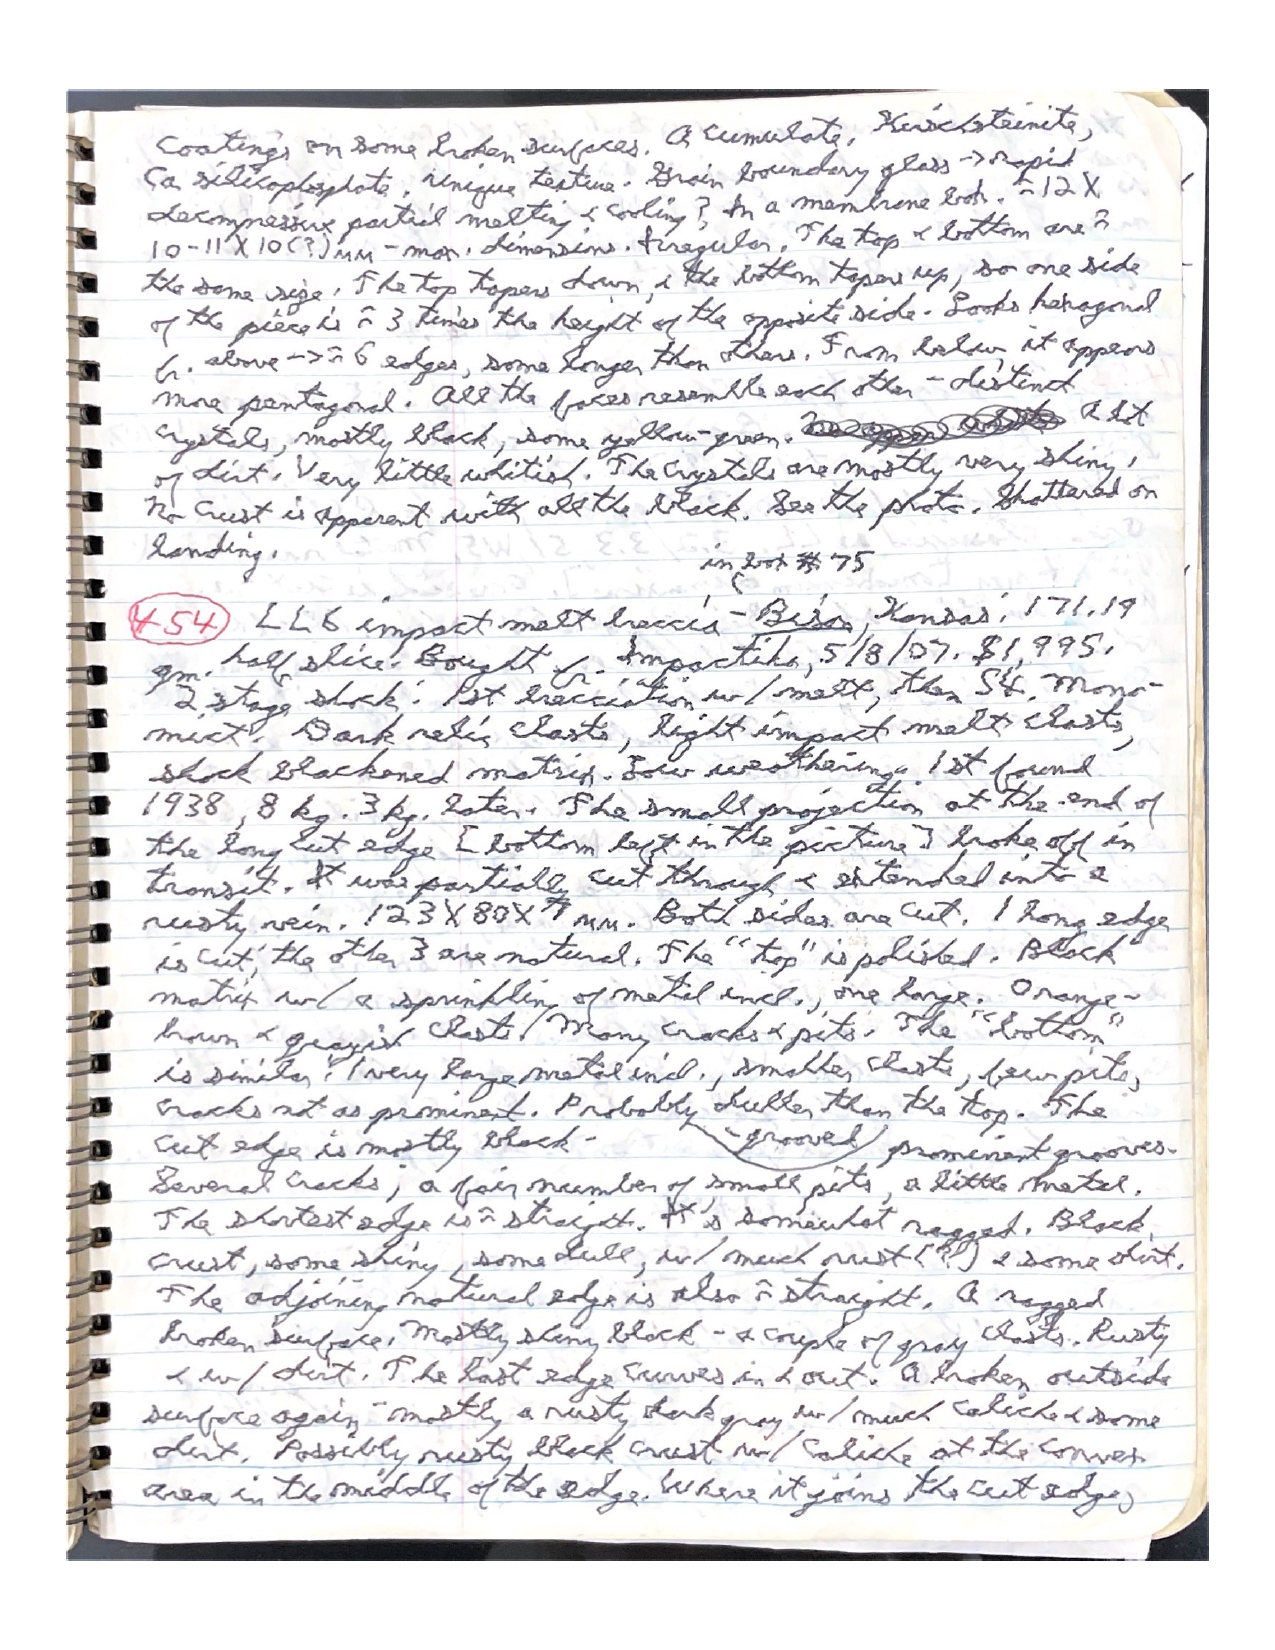 Coatings on some broken surfaces. A cumulate. Kirschsteinite,
Ca silicophosphate. Unique texture. Grain boundary glass -> rapid
decompressive partial melting & cooling? In a membrane box. ≈12X
10-11X10(?)mm - max. dimensions. Irregular. The top & bottom are ≈
the same size. The top tapers down, & the bottom tapers up, so one side
of the piece is ≈ 3 times the height of the opposite side. Looks hexagonal
fr. above -> ≈ 6 edges, some longer than others. From below, it appears
more pentagonal. All the faces resemble each other - distinct
crystals, mostly black, some yellow-green. A bit
of dirt. Very little whitish. The crystals are mostly very shiny.
No crust is apparent with all the black. See the photo. Shattered on
landing.
in box # 75
#54 LL6 impact melt breccia - Bison, Kansas. 171.19
gm. half slice. Bought fr. Impactika, 5/8/07. $1,995.
2 stage shock: 1st brecciation w/ melt, then S4. Mono-
mict. Dark relic clasts, light impact melt clasts,
shock blackened matrix. Low weathering. 1st found
1938, 8 kg. 3 kg. later. The small projection at the end of
the long cut edge [bottom left in the picture] broke off in
transit. It was partially cut through & extended into a
rusty vein. 123X80X mm. Both sides are cut. 1 long edge
is cut, the other 3 are natural. The "top" is polished. Black
matrix w/ a sprinkling of metal incl., one large. Orange-
brown & grayish clasts. Many cracks & pits. The "bottom"
is similar: 1 very large metal incl., smaller clasts, few pits,
cracks not as prominent. Probably duller than the top. The
cut edge is mostly black - grooved prominent grooves.
Several cracks, a fair number of small pits, a little metal.
The shortest edge is ≈ straight. It's somewhat ragged. Black
crust, some shiny, some dull, w/ much rust (?) & some dirt.
The adjoining natural edge is also ≈ straight. A ragged
broken surface. Mostly shiny black - a couple of gray clasts. Rusty
& w/ dirt. The last edge curves in & out. A broken outside
surface again - mostly a rusty dark gray w/ much caliche & some
dirt. Possibly rusty, black crust w/ caliche at the convex
area in the middle of the edge. Where it joins the cut edge,